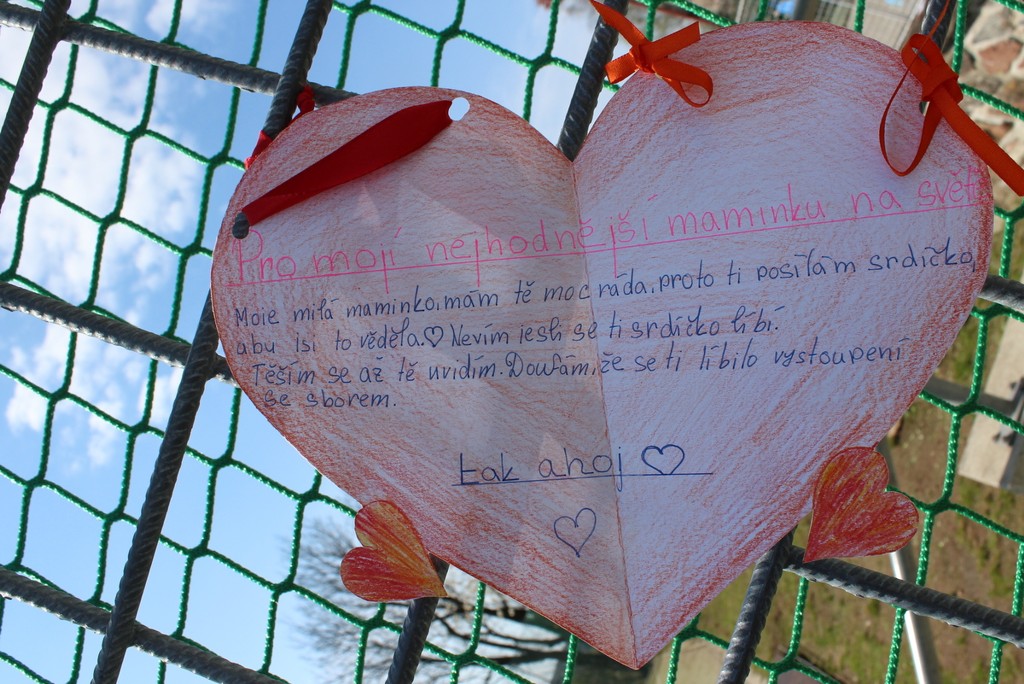 Pro mojí nejhodnější maminku na svět
Moje milá maminko, mám tě moc ráda, proto ti posílám srdíčko,
abu jsi to věděla.♡ Nevím jesli se ti srdíčko líbí.
Těším se až tě uvidím. Doufám, že se ti líbilo vystoupení
se sborem.
tak ahoj ♡